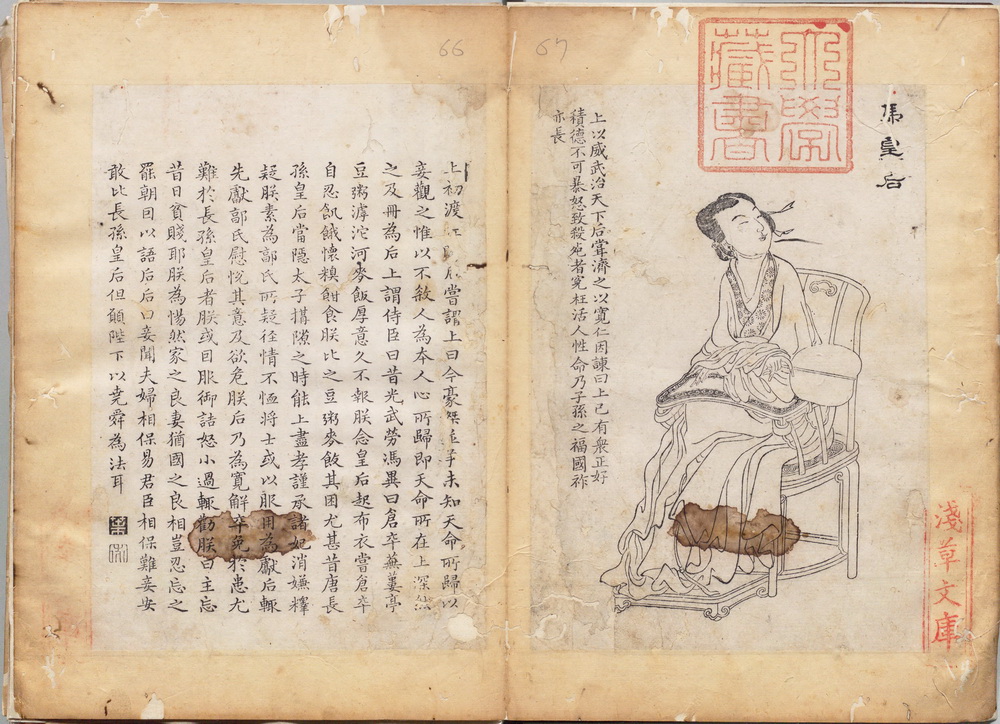 67
馬皇后
大學
藏書
上以威武治天下后嘗濟之以寬仁因諫曰上已有衆正好
積德不可暴怒致殺死者冤枉活人性命乃子孫之福國祚
亦長
淺草文庫
66
上初渡江 嘗謂上曰今豪傑並爭未知天命所歸以
妾觀之惟以不殺人為本人心所歸即天命所在上深然
之及冊為后上謂侍臣曰昔光武勞馮異曰倉卒蕪蔞亭
豆粥滹沱河麥飯厚意久不報朕念皇后起布衣嘗倉卒
自忍飢餓懷糗餌食朕比之豆粥麥飯其困尤甚昔唐長
孫皇后當隱太子搆隙之時能上盡孝謹承諸妃消嫌釋
疑朕素為郭氏所疑徑情不恤將士或以服用為獻后輒
先獻郭氏慰悅其意及欲危朕后乃為寬解卒免於患尤
難於長孫皇后者朕或因服御詰怒小過輒勸朕曰主忘
昔日貧賤耶朕為惕然家之良妻猶國之良相豈忍忘之
罷朝因以語后后曰妾聞夫婦相保易君臣相保難妾安
敢比長孫皇后但願陛下以堯舜為法耳